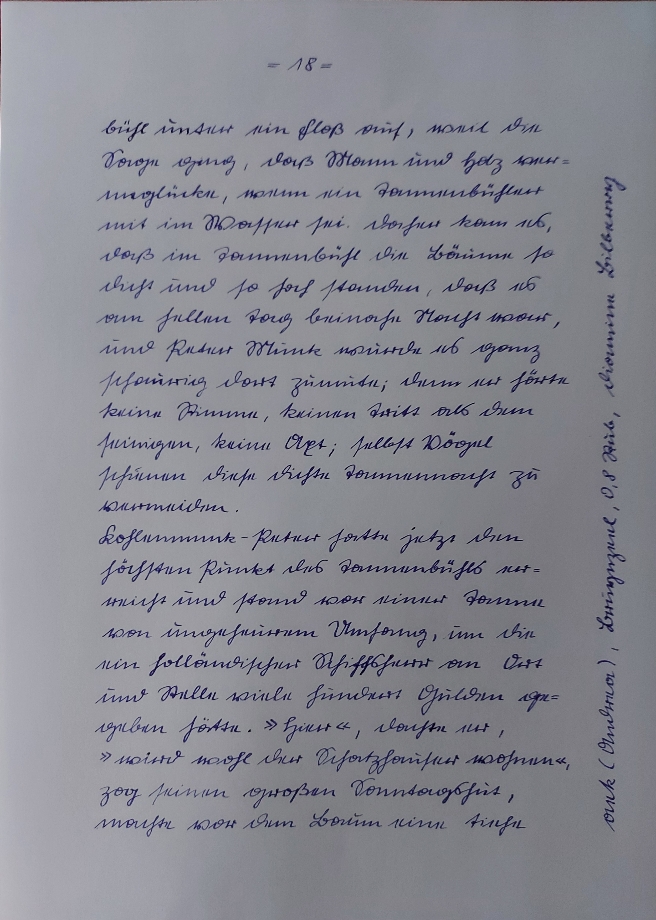 = 18 =
bühl unter ein Floß auf, weil die
Sage ging, daß Mann und Holz ver=
unglücke, wenn ein Tannenbühler
mit im Wasser sei. Daher kam es,
daß im Tannenbühl die Bäume so
dicht und so hoch standen, daß es
am hellen Tag beinahe Nacht war,
und Peter Munk wurde es ganz
schaurig dort zumute; denn er hörte
keine Stimme, keinen Tritt als den
seinigen, keine Axt; selbst Vögel
schienen diese dichte Tannennacht zu
vermeiden.
Kohlenmunk-Peter hatte jetzt den
höchsten Punkt des Tannenbühls er=
reicht und stand vor einer Tanne
von ungeheurem Umfang, um die
ein holländischer Schiffsherr an Ort
und Stelle viele hundert Gulden ge=
geben hätte. »Hier«, dachte er,
»wird wohl der Schatzhauser wohnen«,
zog seinen großen Sonntagshut,
machte vor dem Baum eine tiefe
ark (Andrea), 0,8 Stub, Diamine Bilberry